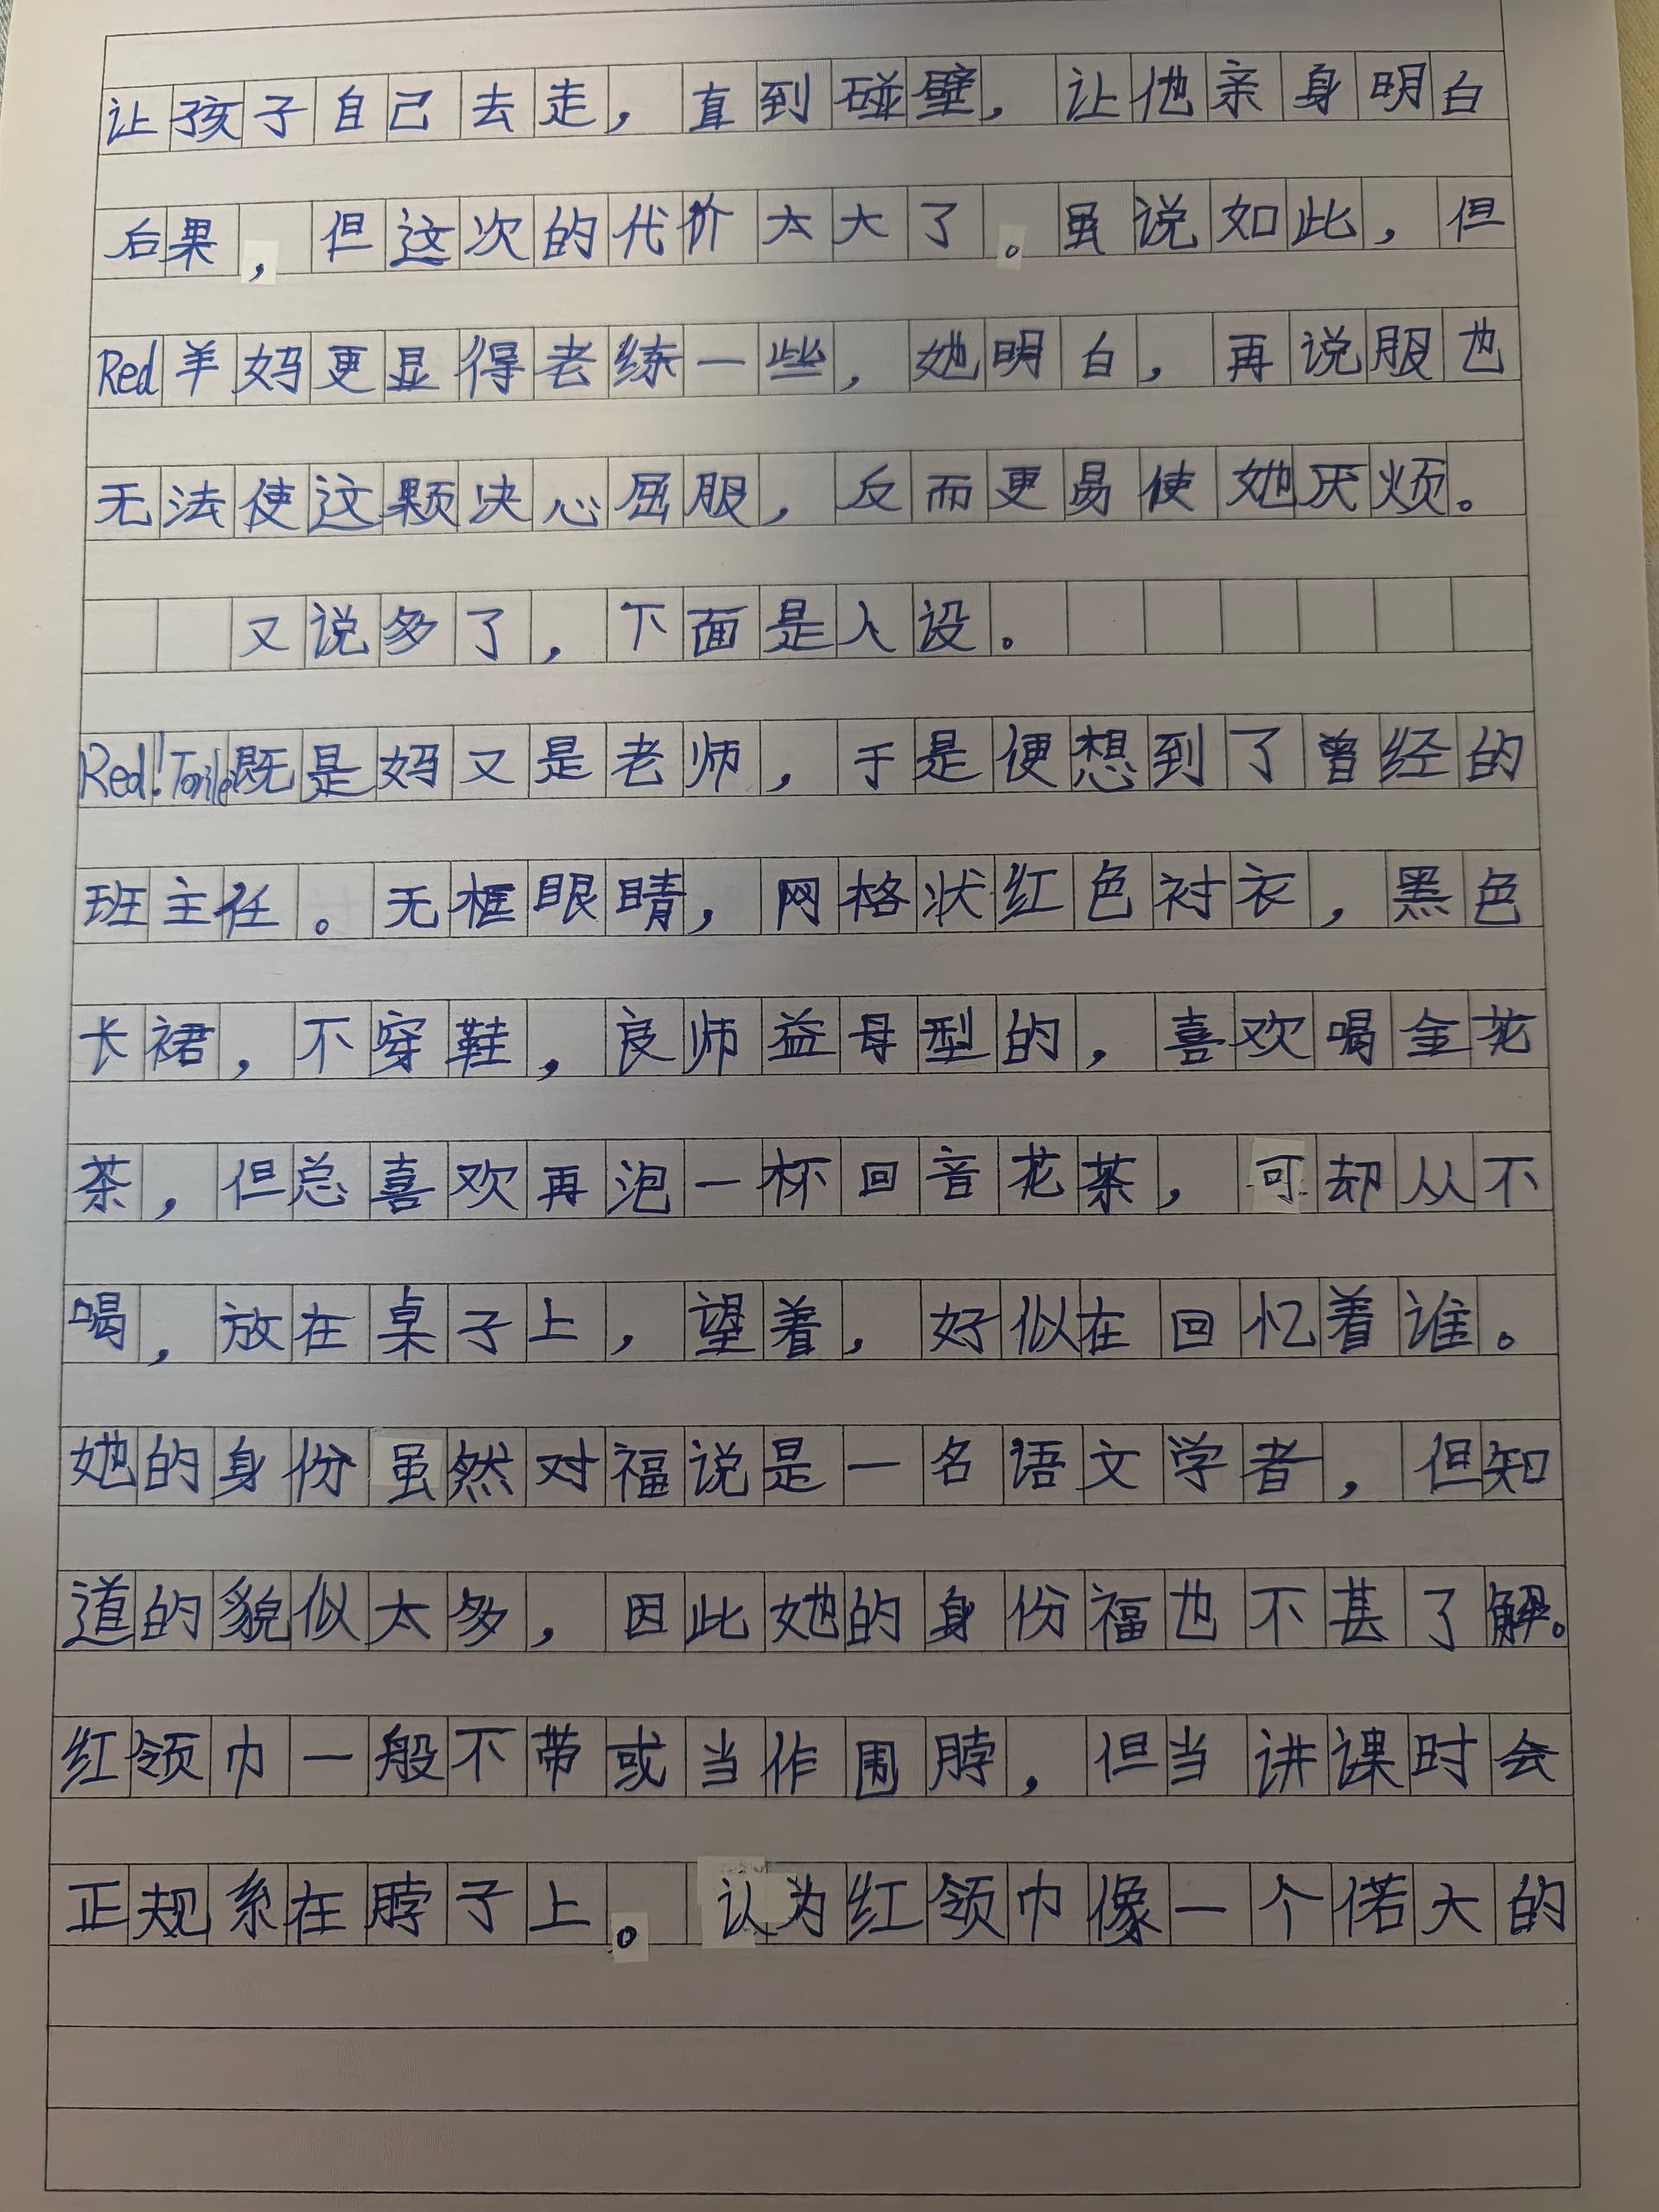 让孩子自己去走，直到碰壁，让他亲身明白
后果，但这次的代价太大了。虽说如此，但
Red羊妈更显得老练一些，她明白，再说服也
无法使这颗决心屈服，反而更易使她厌烦。
又说多了，下面是人设。
Red!Toriel既是妈又是老师，于是便想到了曾经的
班主任。无框眼睛，网格状红色衬衣，黑色
长裙，不穿鞋，良师益母型的，喜欢喝金花
茶，但总喜欢再泡一杯回音花茶，可却从不
喝，放在桌子上，望着，好似在回忆着谁。
她的身份虽然对福说是一名语文学者，但知
道的貌似太多，因此她的身份福也不甚了解。
红领巾一般不带或当作围脖，但当讲课时会
正规系在脖子上。认为红领巾像一个偌大的